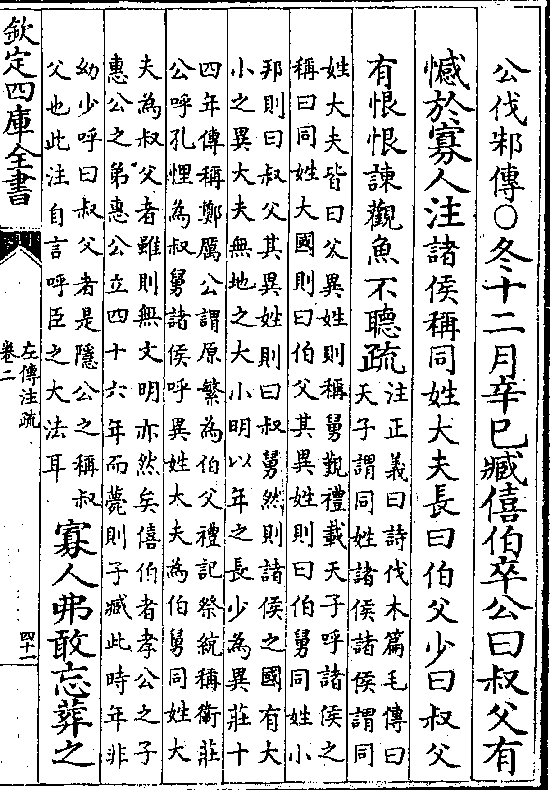 公伐邾傳○冬十二月辛巳臧僖伯卒公曰叔父有
憾於寡人注諸侯稱同姓大夫長曰伯父少曰叔父
有恨恨諫觀魚不聽疏
注正義曰詩伐木篇毛傳曰
天子謂同姓諸侯諸侯謂同
姓大夫皆曰父異姓則稱舅覲禮載天子呼諸侯之
稱曰同姓大國則曰伯父其異姓則曰伯舅同姓小
邦則曰叔父其異姓則曰叔舅然則諸侯之國有大
小之異大夫無地之大小明以年之長少為異莊十
四年傳稱鄭厲公謂原繁為伯父禮記祭統稱衛莊
公呼孔悝為叔舅諸侯呼異姓大夫為伯舅同姓大
夫為叔父者雖則無文明亦然矣僖伯者孝公之子
惠公之弟惠公立四十六年而薨則子臧此時年非
幼少呼曰叔父者是隱公之稱叔
父也此注自言呼臣之大法耳
寡人弗敢忘葬之
欽定四庫全書
左傳注疏
卷二
四十一